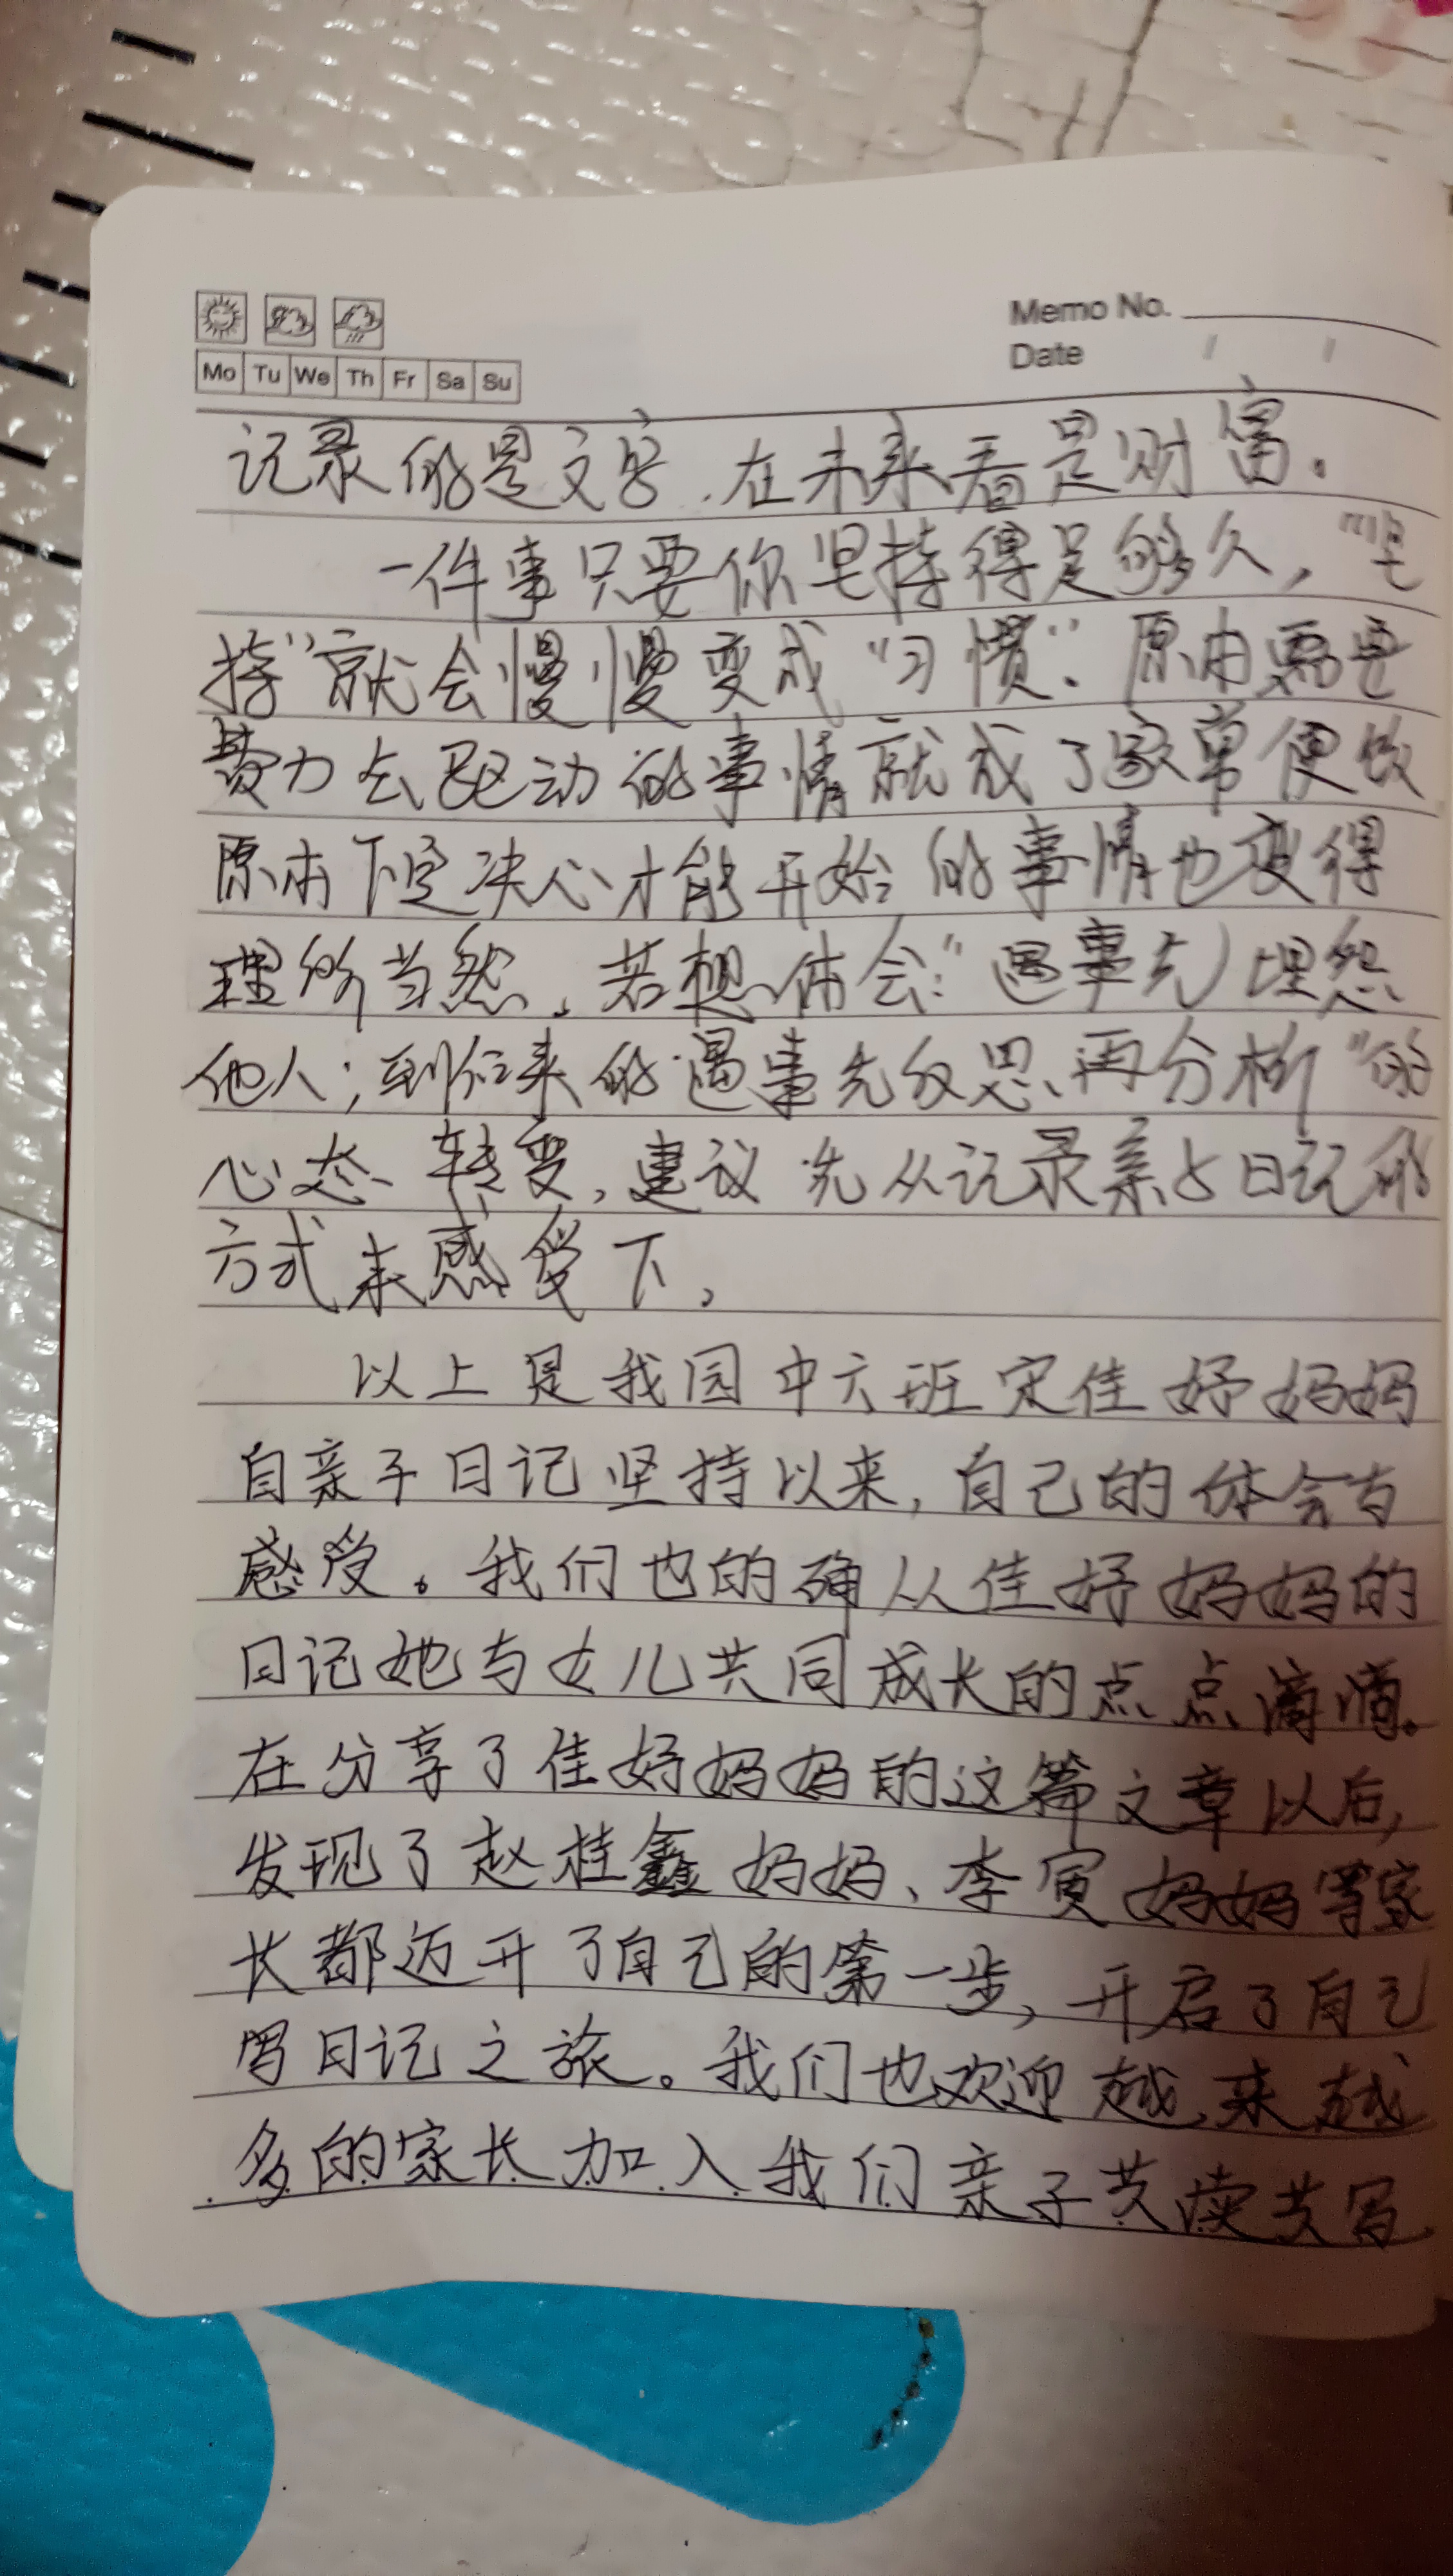 Memo No.
Date / /
Mo Tu We Th Fr Sa Su
记录的是文字,在未来看是财富。
一件事只要你坚持得足够久,“坚
持”就会慢慢变成“习惯”。原本需要
费力去驱动的事情就成了家常便饭
原本下定决心才能开始的事情也变得
理所当然。若想体会:“遇事先埋怨
他人;到后来的遇事先反思、再分析”的
心态转变,建议先从记录亲子日记的
方式来感受下。
以上是我园中六班 佳妤妈妈
自亲子日记坚持以来,自己的体会与
感受。我们也的确从佳妤妈妈的
日记她与女儿共同成长的点点滴滴。
在分享了佳妤妈妈的这篇文章以后,
发现了赵桂鑫妈妈、李寅妈妈等家
长都迈开了自己的第一步,开启了自己
写日记之旅。我们也欢迎越来越
多的家长加入我们亲子共读共写